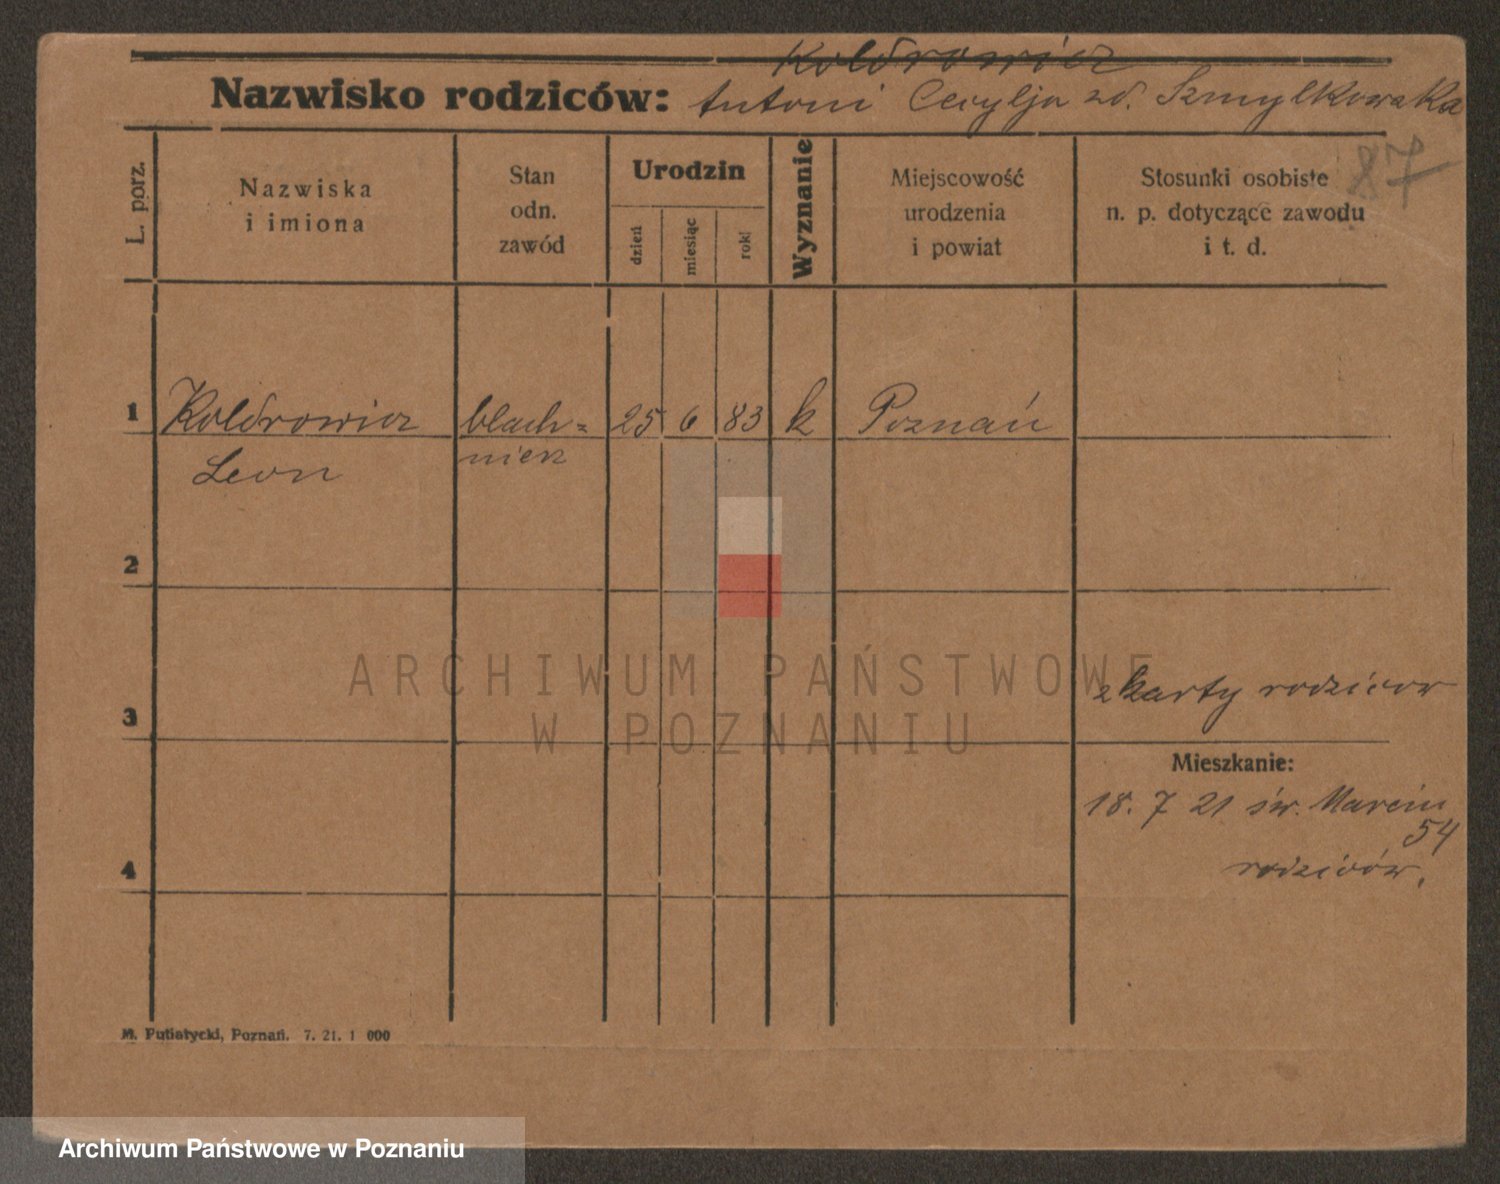 Koldrowicz
Nazwisko rodziców: Antoni Cecylja zd. Szmylkowska
87
L. porz.
Nazwiska
i imiona
Stan
odn.
zawód
Urodzin
dzień
miesiąc
rok
Wyznanie
Miejscowość
urodzenia
i powiat
Stosunki osobiste
n. p. dotyczące zawodu
i t. d.
1 Koldrowicz blach= 25 6 83 k Poznań
Leon nierz
2
ARCHIWUM PAŃSTWOWE
W POZNANIU
z karty rodziców
3
Mieszkanie:
18. 7 21 św. Marcin
54
rodziców.
4
M. Putiatycki, Poznań. 7. 21. 1 000
Archiwum Państwowe w Poznaniu